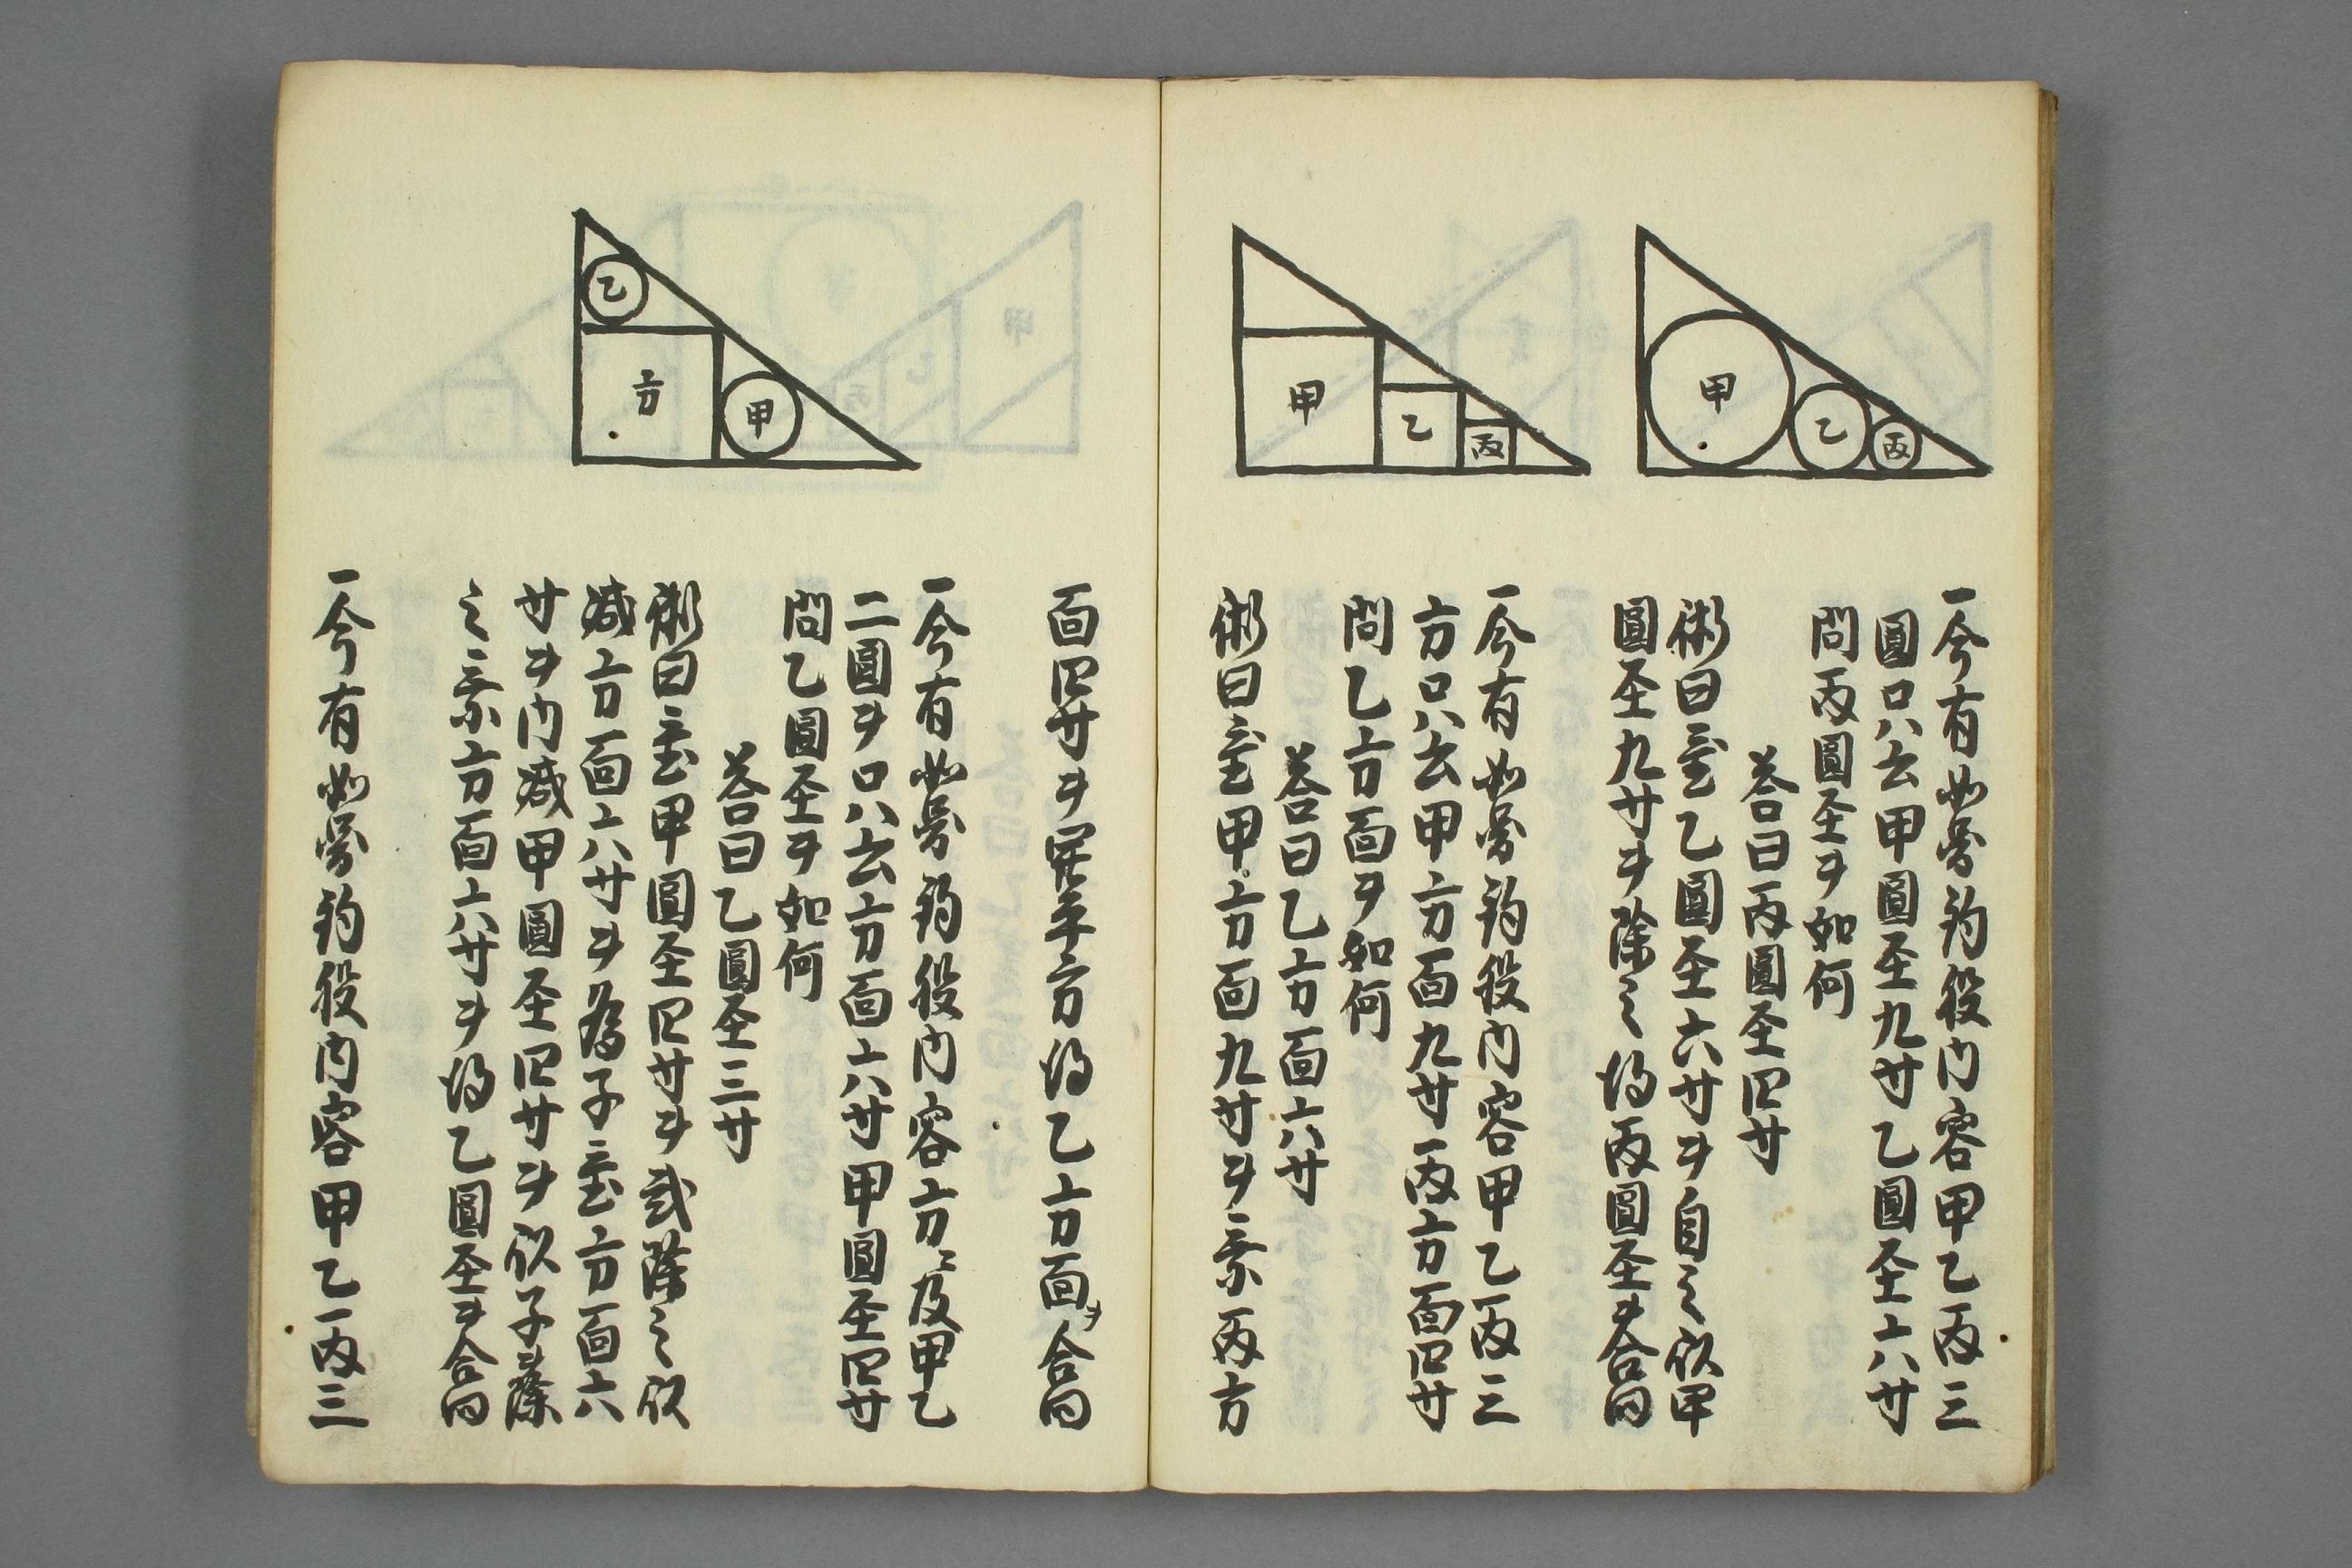 甲
乙
丙
甲
乙
丙
一今有如旁鈎股内容甲乙丙三
圓只云甲圓径九寸乙圓径六寸
問丙圓径ヲ如何
答曰丙圓径四寸
術曰置乙圓径六寸ヲ自之以甲
圓径九寸ヲ除之得丙圓径ヲ合問
一今有如旁鈎股内容甲乙丙三
方只云甲方面九寸丙方面四寸
問乙方面ヲ如何
答曰乙方面六寸
術曰置甲方面九寸ヲ乗丙方
乙
方
甲
面四寸ヲ開平方得乙方面ヲ合問
一今有如旁鈎股内容方及甲乙
二圓ヲ只云方面六寸甲圓径四寸
問乙圓径ヲ如何
答曰乙圓径三寸
術曰置甲圓径四寸ヲ弐除之以
減方面六寸ヲ為子置方面六
寸ヲ内減甲圓径四寸ヲ以子除
之乗方面六寸ヲ得乙圓径ヲ合問
一今有如旁鈎股内容甲乙丙三